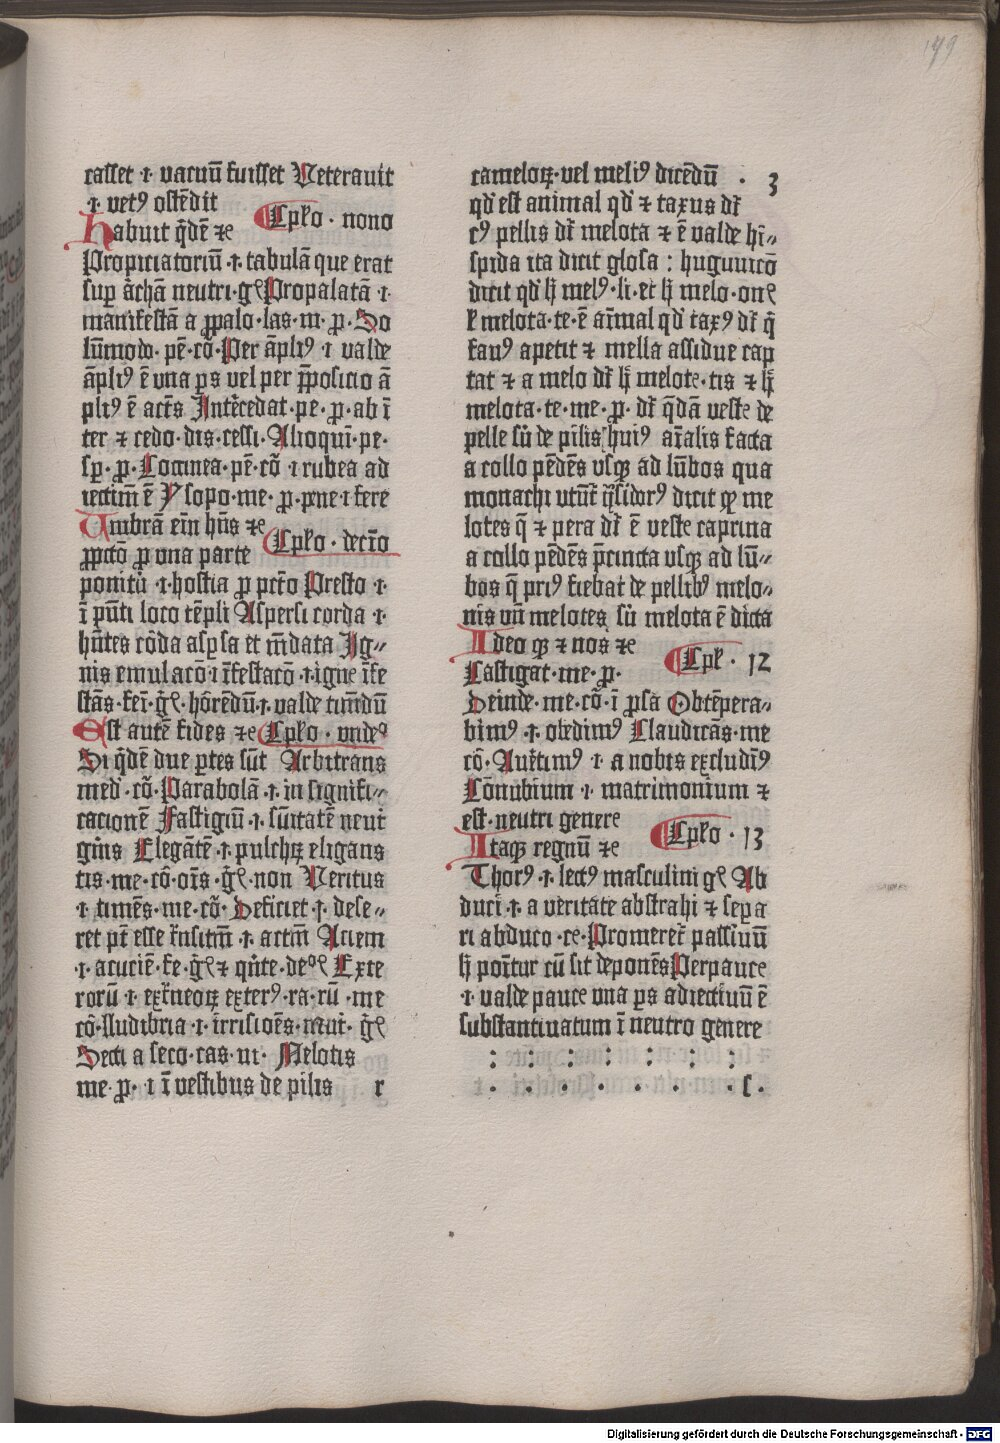 199
casset ·i· vacuū fuisset Veterauit
·i· vetꝰ ostēdit
Cpło · nono
habuit qͥdē ⁊c
Propiciatoriū ·i· tabulā que erat
sup archā neutri · gͥs Propalatā ·i·
manifestā a ꝓpalo · las · m · p · So
lūmodo · pē · cō · Per āpliꝰ ·i· valde
āpliꝰ ē vna ps vel per p̄posicio ā
pliꝰ ē actīs Intercedat · pe · p · ab ī
ter ⁊ cedo · dis · cessi · Alioqui · pe ·
sp · p · Coccinea · pē · cō ·i· rubea ad
iectim̄ ē Ysopo · me · p · pne ·i· fere
Umbrā ein̄ hn̄s ⁊c
Cpło · decīo
ꝓpctō p vna parte
ponitur ·i· hostia p pctō Presto ·i·
ī pn̄ti loco tēpli Aspersi corda ·i·
hn̄tes corda aspsa et mūdata Ig⸗
nis emulacō ·i· īfestacō ·i· igne īfe
stās · fēi · gͥs · horrēdū ·i· valde timēdū
Est autē fides ⁊c Cpło · vndeᵒ
Si qͥdē due ptes sūt Arbitrans
med · cō · Parabolā ·i· in signifi⸗
cacionē Fastigiū ·i· sūitatē neut
gn̄is Elegātē ·i· pulchꝝ eligans
tis · me · cō · oīs · gͥs · non Veritus
·i· timēs · me · cō · Deficiet ·i· dese⸗
ret pt̄ esse trn̄sitm̄ ·i· actm̄ Aciem
·i· acuciē · fe · gͥs ⁊ qn̄te · deᵒs Exte
rorū ·i· extrneoꝝ exterꝰ · ra · rū · me
cō · lludibria ·i· irrisioēs · neut · gͥs
Secti a seco · cas · ui · Melotis
me · p ·i· ī vestibus de pilis r
cameloꝝ · vel meliꝰ dicēdū · 3
qd̄ est animal qd̄ ⁊ taxus dr̄
cꝰ pellis dr̄ melota ⁊ ē valde hī⸗
spida ita dicit glosa : huguuicō
dicit qd̄ hꝫ melꝰ · li · et hꝫ melo · onͥs
ł melota · te · ē aīmal qd̄ taxꝰ dr̄ q̄
fauꝰ apetit ⁊ mella assidue cap
tat ⁊ a melo dr̄ hꝫ melote · tis ⁊ hꝫ
melota · te · me · p · dr̄ qdā veste de
pelle siue de pilis huiꝰ aīalis facta
a collo pēdēs vsqꝫ ad lūbos qua
monachi utūt ysidorꝰ dicit ꝙ me
lotes q̄ ⁊ pera dr̄ ē veste caprina
a collo pēdēs pcincta vsqꝫ ad lū⸗
bos q̄ priꝰ fiebat de pellibꝰ melo⸗
nis vn̄ melotes siue melota ē dicta
Ideo qꝫ ⁊ nos ⁊c
Cpł · 12
Castigat · me · p ·
Deinde · me · cō · ī psā Obtēpera⸗
bimꝰ ·i· obedimꝰ Claudicās · me
cō · Auertimꝰ ·i· a nobis excludimꝰ
Cōnubium ·i· matrimonium ⁊
est · neutri genere
Cpło · 13
Itaqꝫ regnū ⁊c
Thorꝰ ·i· lectꝰ masculini gͥs Ab
duci ·i· a veritate abstrahi ⁊ sepa
ri abduco · ce · Promeretr passiuū
hꝫ ponitur cū sit deponēs Perpauce
·i· valde pauce vna ps adiectiuū ē
substantiuatum ī neutro genere
Digitalisierung gefördert durch die Deutsche Forschungsgemeinschaft - DFG